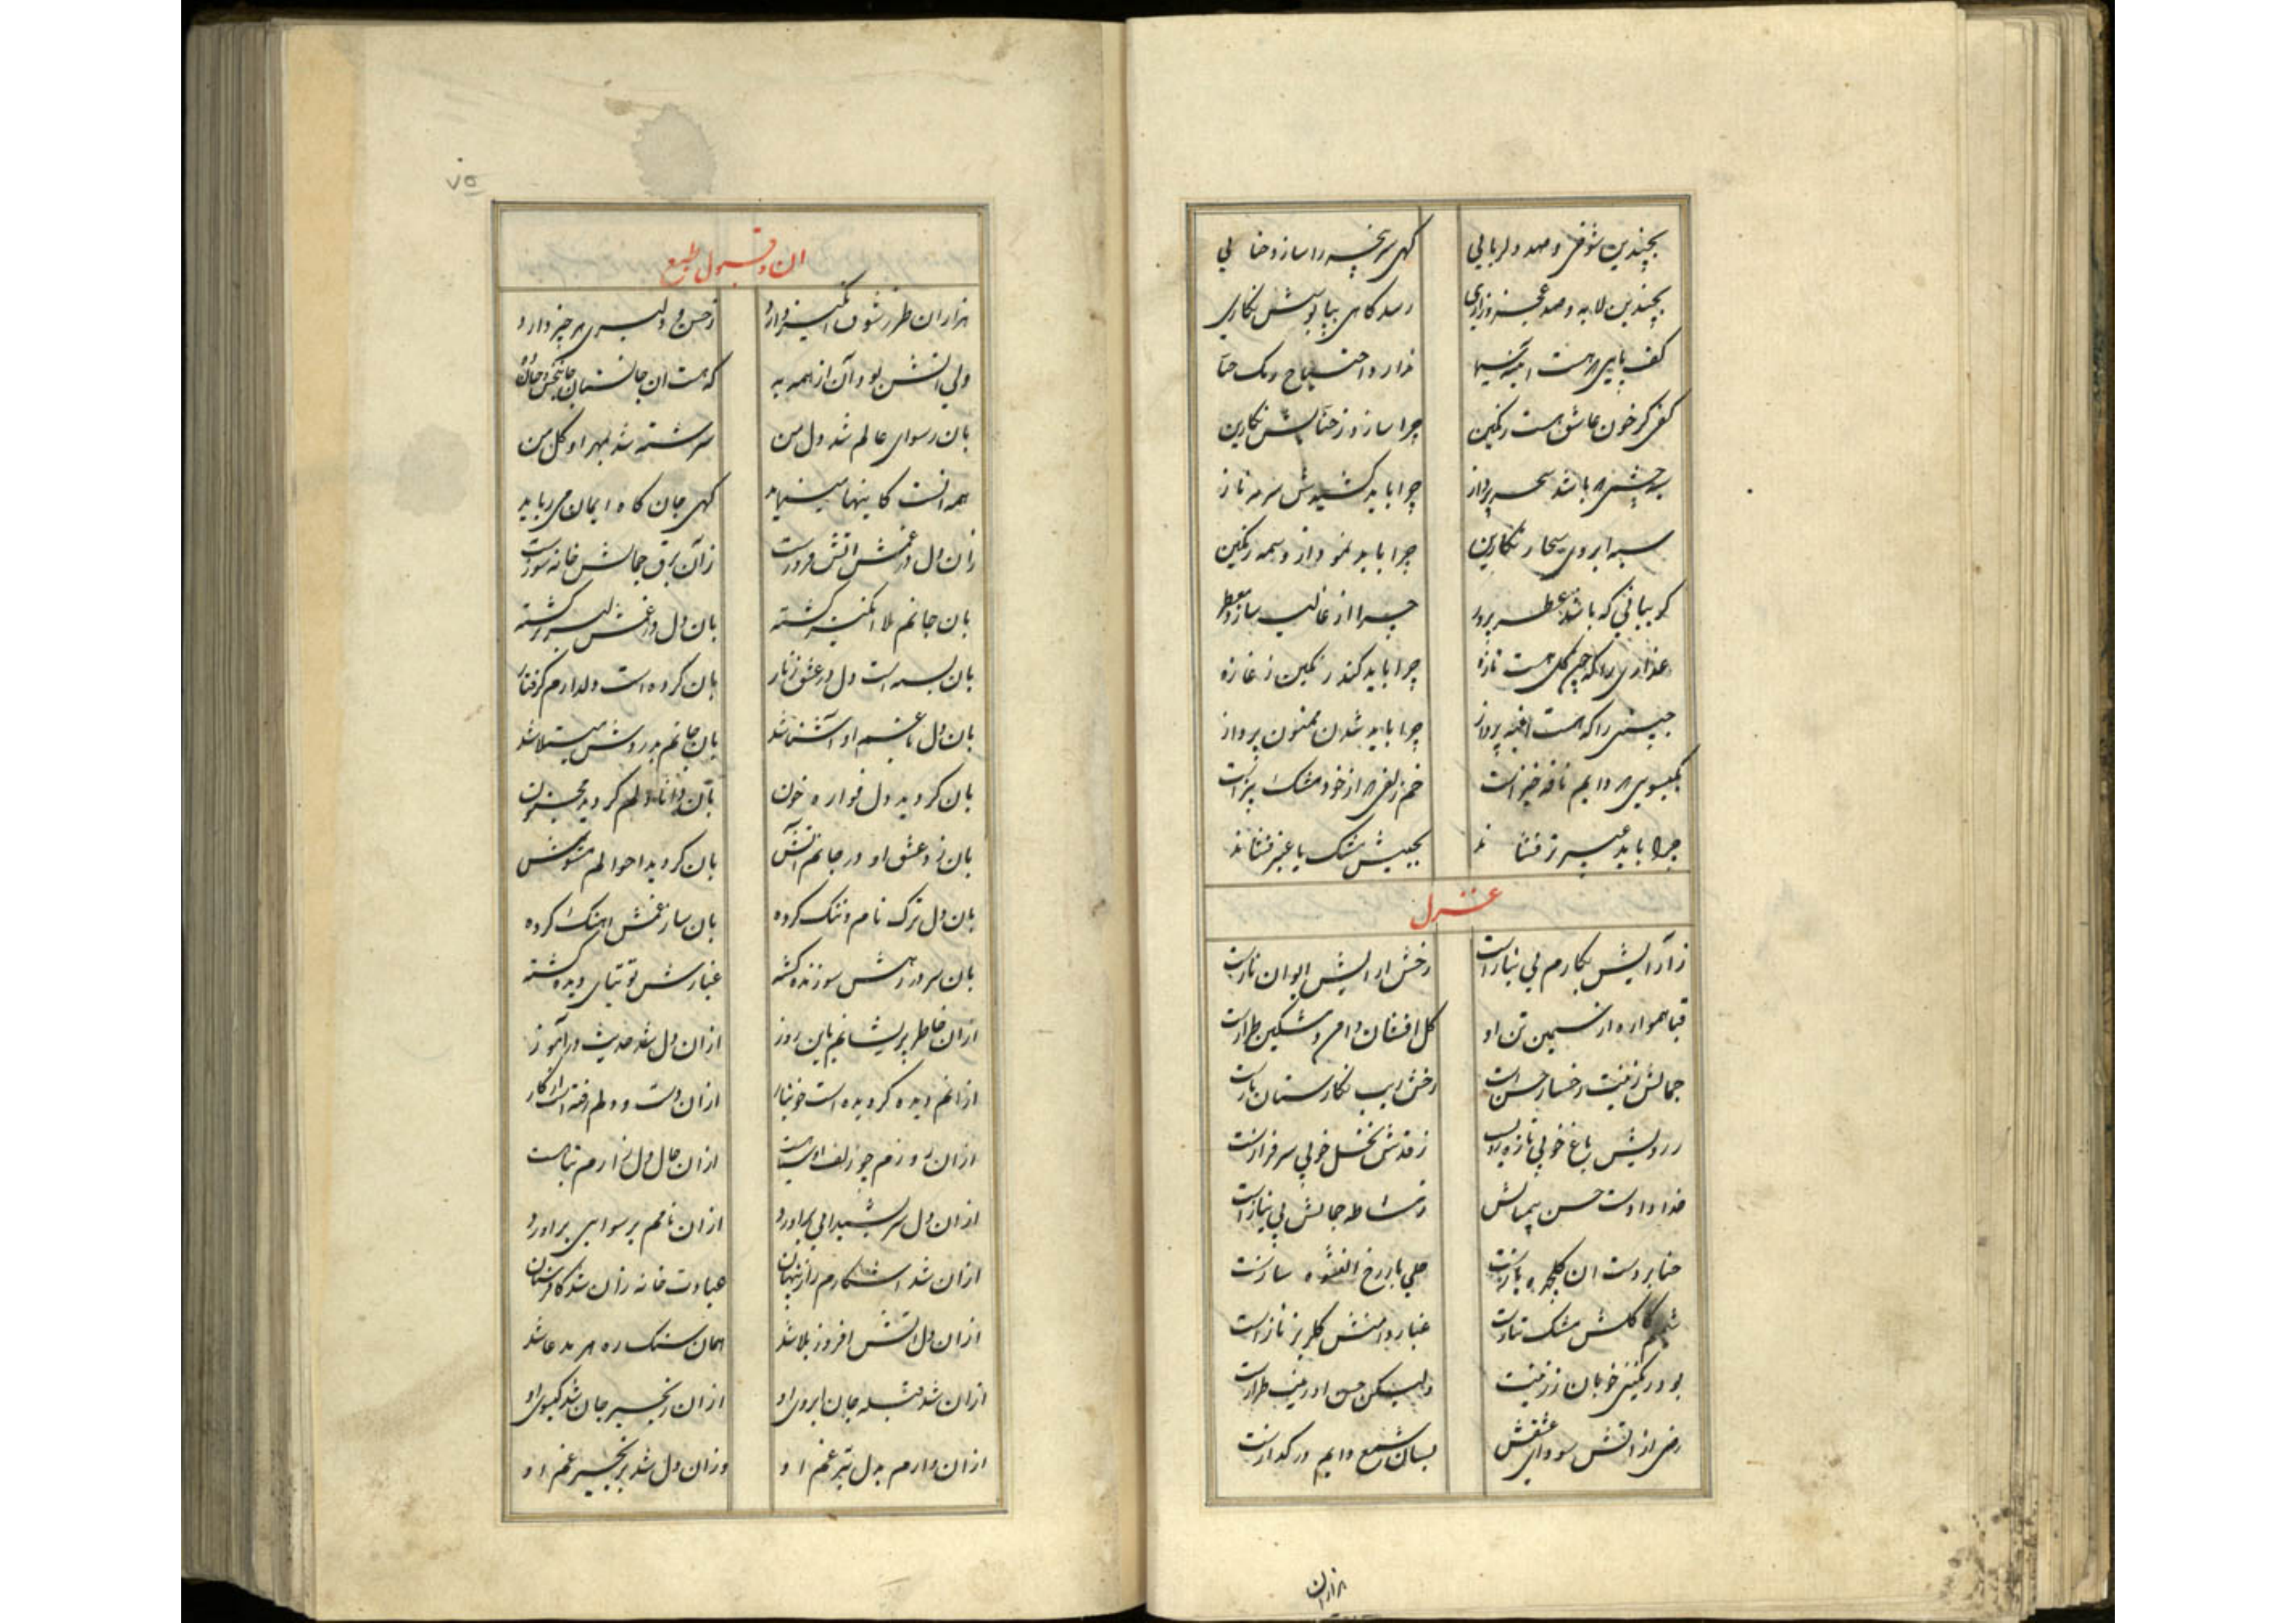 بچندین شوخی و صد دلربایی گهی سرپنجه را سازد حنایی
بچندین لابه و صد عجز و زاری رسد گاهی بپا بوسش نگاری
کف پایی که هست ندارد احتیاج رنگ حنا
کفی کز خون عاشق هست رنگین چرا سازد ز حنایش نگارین
چشمی که باشد سحر پرداز چرا باید کشیدش سرمه ناز
سیه ابروی سحار نگارین چرا باید نمود از وسمه رنگین
که باشد عطر پرور چرا از غالیه سازد معطر
عذاری را که چون گل هست تازه چرا باید کند رنگین ز غازه
جبینی را که هست پرداز چرا باید شدن ممنون پرداز
بگیسویی که دایم نافه خیز است خم زلفی که از خود مشک بیز است
چرا باید عبیر تر فشاند بجیبش مشک یا عنبر فشاند
غزل
ز آرایش نگارم بی نیاز است رخش آرایش ایوان ناز است
قبا همواره از سیمین تن او گل افشان دامن و مشکین طراز است
جمالش زینت رخسار حسن است رخش زیب نگارستان
ز رویش باغ خوبی تازه ز قدش نخل خوبی سرفراز است
خدا داد است حسن بیمثالش ز مشاطه جمالش بی نیاز است
حنا بر دست آن گلچهره حلی با زرخ
کاکلش مشک غبار دامنش گلریز ناز است
بود رنگینی خوبان ز زینت ولیکن حسن او زینت طراز است
رضی از آتش سودای عشقش بسان شمع دایم در گداز است
هزاران
۷۵
آن و قبول طبع
هزاران طرز شوق انگیز دارد ز حسن و دلبری هر چیز دارد
ولی آنش بود و آن از همه به که هست آن جانستان جانبخش و جان ده
بآن رسوای عالم شد دل من سرشته شد بمهر او گل من
همه آنست کاینها مینماید گهی جان گاه ایمان می رباید
زان دل در غمش آتش فروز است ز آن برق جمالش خانه سوز است
بان جانم بلا انگیز گشته بان دل در غمش لبریز گشته
بان بسته است دل در عشق زنار بان کرده است دلدارم گرفتار
بان دل با غم او آشنا شد بان جانم بدردش مبتلا شد
بان گردید دل فواره خون بآن دانا دلم گردید مجنون
بان زد عشق او در جانم آتش بان گردید احوالم مشوش
بان دل ترک نام و ننگ کرده بان ساز غمش آهنگ کرده
بان سر در رهش سوزنده گشته غبارش توتیای دیده گشته
ازان خاطر پریشانم باین روز ازان دل شد حدیث درد آموز
ازانم دیده گردیده است خونبار ازان دست و دلم رفته است از کار
ازان روزم چو زلف او سیاهست ازان حال دل زارم تباهست
ازان دل سر بشیدایی برآورد ازان نامم برسوایی برآورد
ازان شد آشکارم راز پنهان عبادت خانه زان شد کافرستان
ازان دل آتش افروز بلا شد همان سنگ ره هر مدعا شد
ازان شد قبله جان ابروی او ازان زنجیر جان شد گیسوی او
ازان دارم بدل تیر غم او وزان دل شد بزنجیر غم او